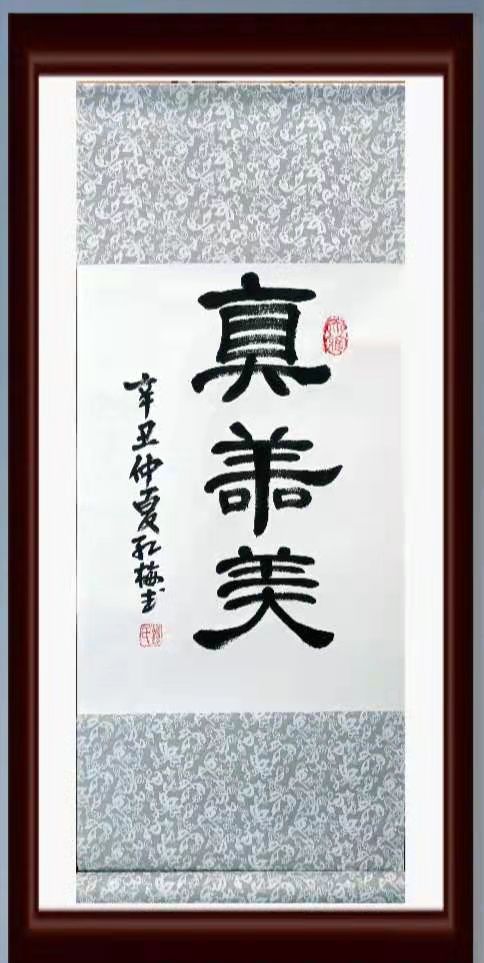 真善美
辛丑仲夏红梅书